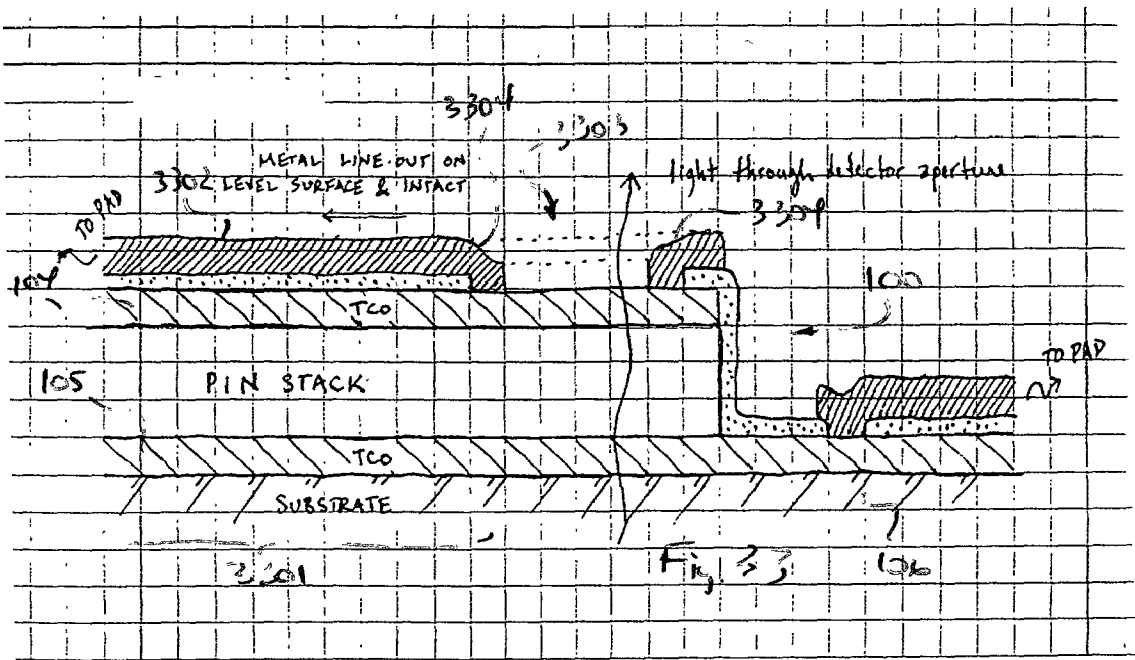 3304
3303
METAL LINE-OUT ON
3302 LEVEL SURFACE & INTACT
light through detector aperture
3304
TO PAD
104
100
TCO
TO PAD
105
PIN STACK
TCO
SUBSTRATE
3301
Fig. 33
106